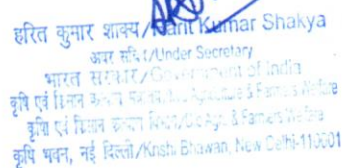 हरित कुमार शाक्य/Harit Kumar Shakya
अवर सचिव/Under Secretary
भारत सरकार/Government of India
कृषि एवं किसान कल्याण /& Farmers Welfare
कृषि एवं किसान कल्याण विभाग/& Farmers Welfare
कृषि भवन, नई दिल्ली/Krishi Bhawan, New Delhi-110001